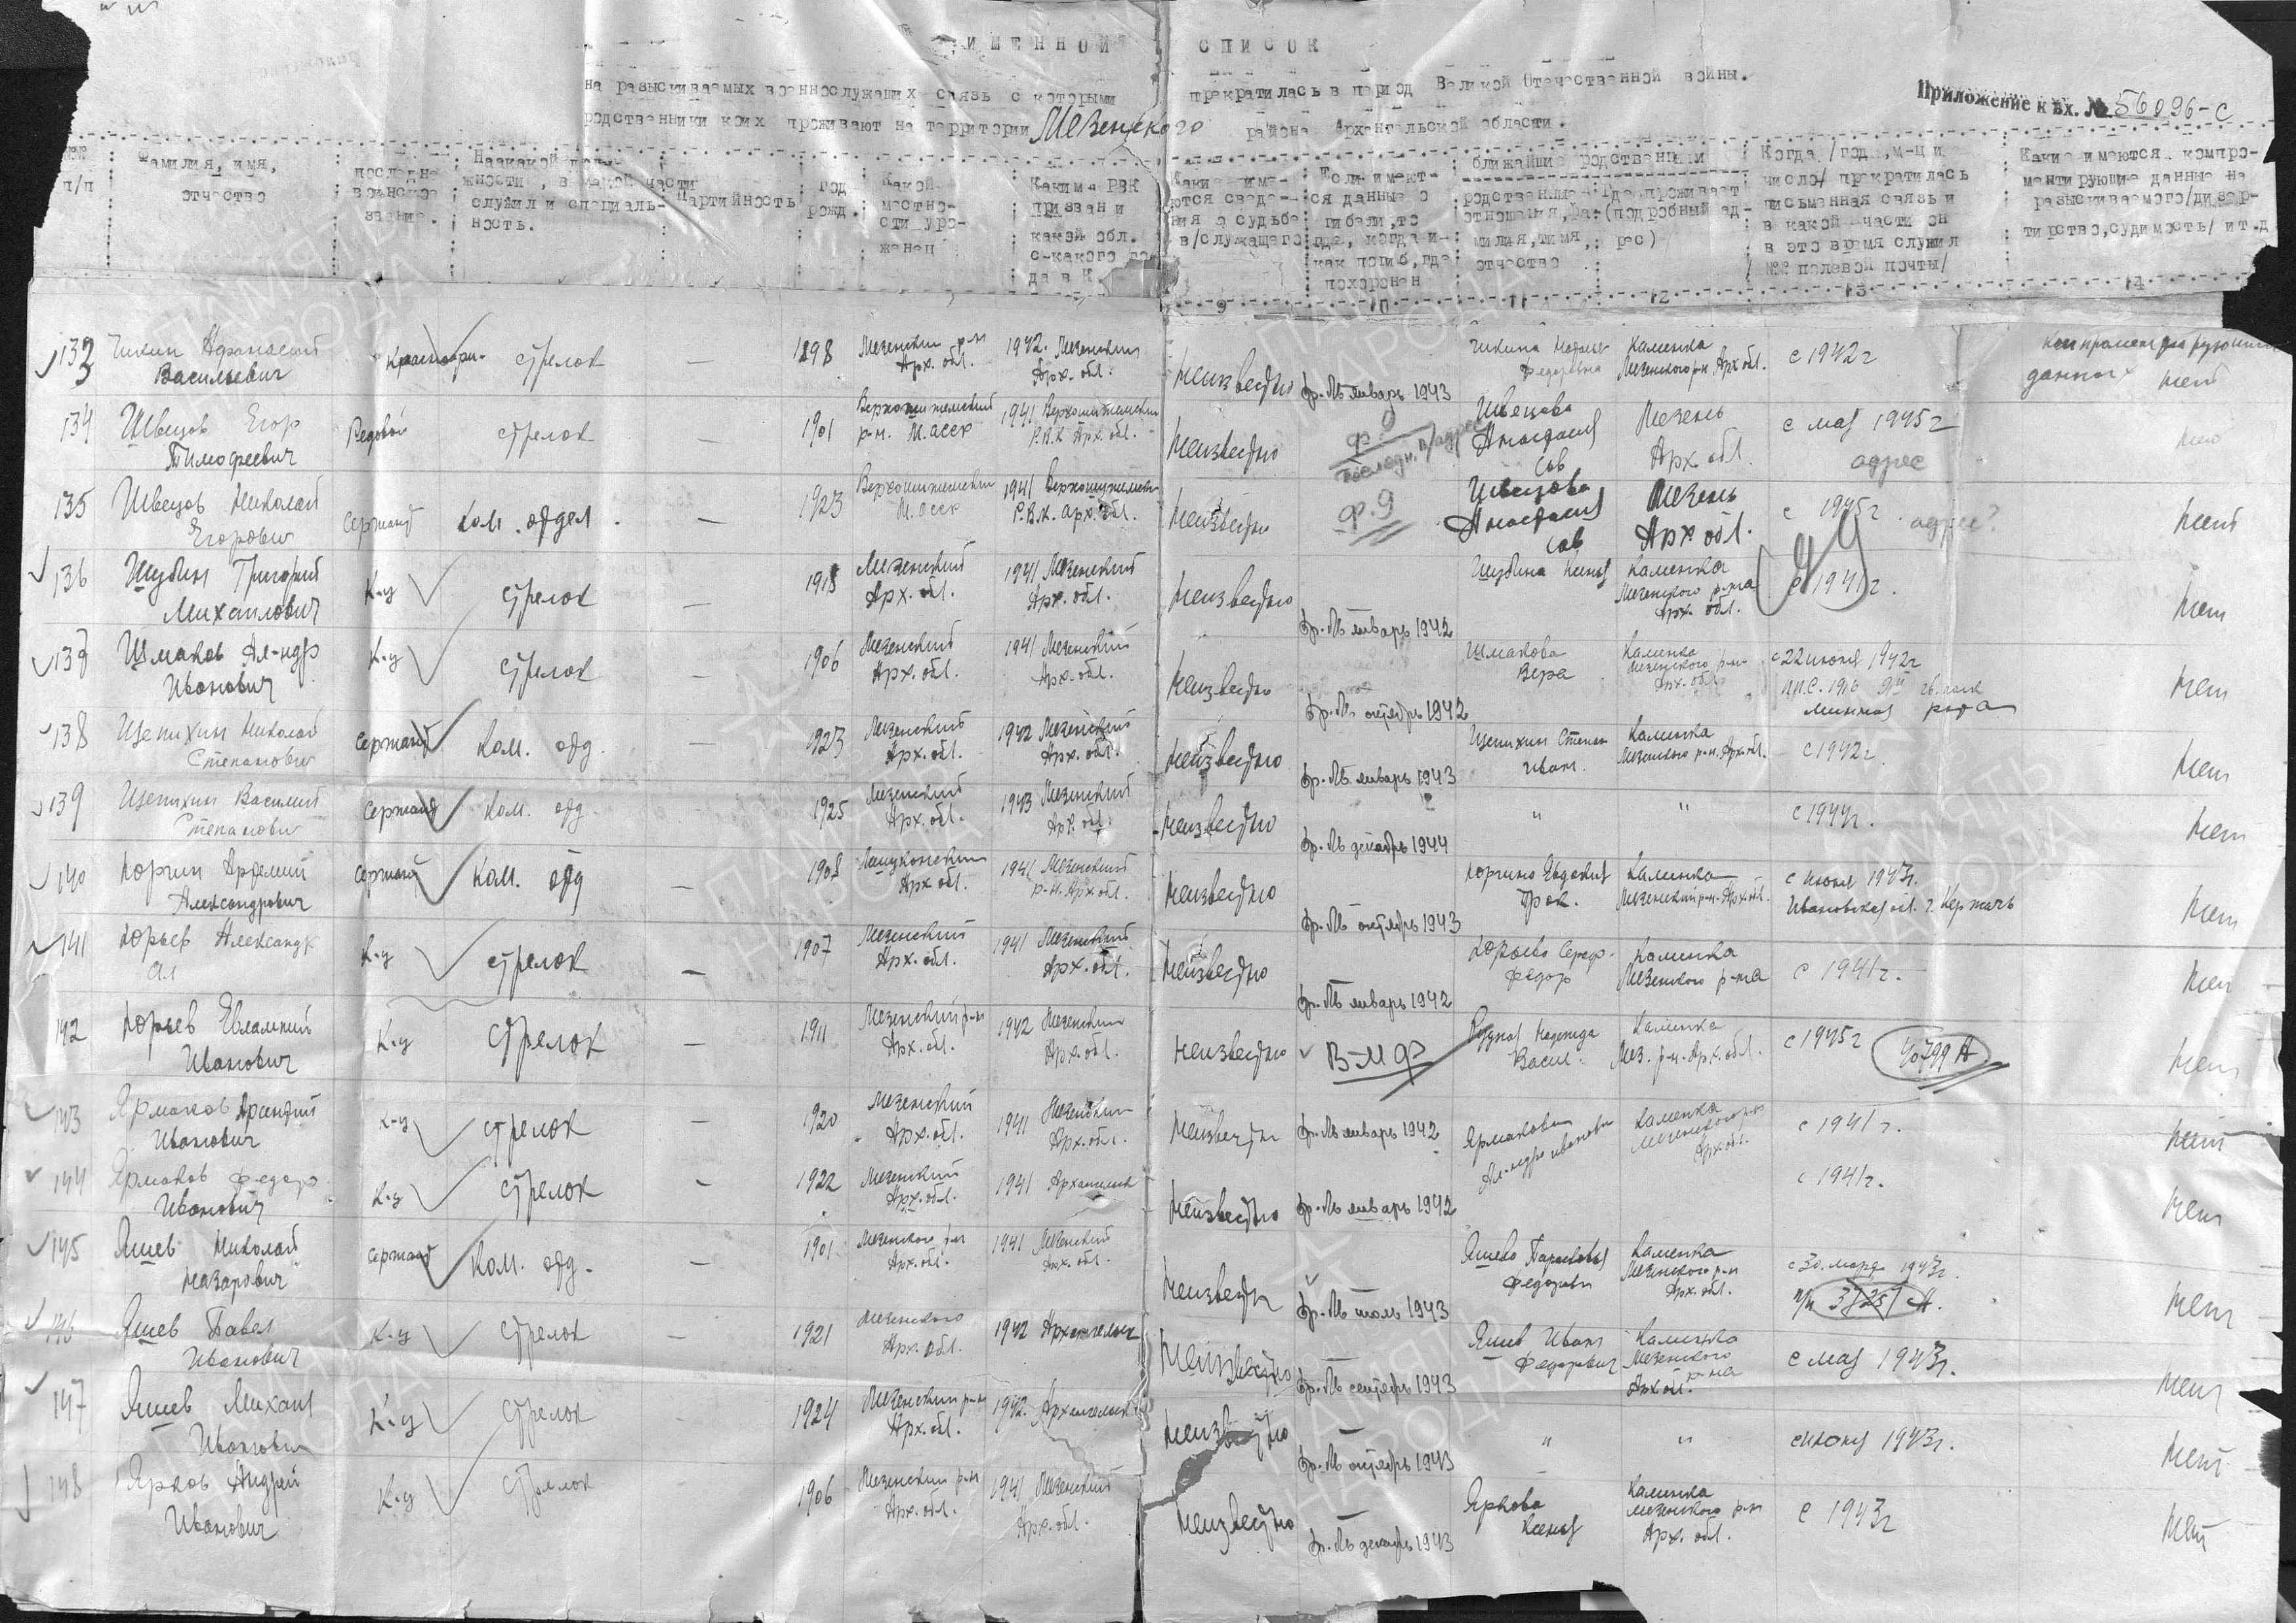 ИМЕННОЙ СПИСОК
на разыскиваемых военнослужащих связь с которыми прекратилась в период Великой Отечественной войны.
родственники коих проживают на территории Мезенского района Архангельской области.
Приложение к вх. № 56096-с
№№ п/п
Фамилия, имя, отчество
последнее воинское звание.
На какой должности, в какой части служил и специальность.
Партийность
год рожд.
Какой местности уроженец
Каким РВК призван и какой обл. с какого года в К
Какие имеются сведения о судьбе в/служащего
Если имеются данные о гибели, то где, когда и как погиб, где похоронен
ближайшие родственники
родственные отношения, фамилия, имя, отчество
Где проживает (подробный адрес)
Когда /год, м-ц и число/ прекратилась письменная связь и в какой части он в это время служил /№№ полевой почты/
Какие имеются компрометирующие данные на разыскиваемого/дизертирство, судимость/ и т.д
9 10 11 12 13 14
133 Чикин Афанасий Васильевич Красноарм. стрелок — 1898 Мезенский р-н Арх. обл. 1942. Мезенский Арх. обл. неизвестно пр. б/в январь 1943 Чикина Федоровна Каменка Мезенского р-н Арх обл. с 1942 г данных нет
134 Швецов Егор Тимофеевич Рядовой стрелок — 1901 р-н. М.АССР 1941 Р.В.К Арх. обл. неизвестно ф. 9 последн. п/адрес Швецова Анастасия Сав Мезень Арх. обл. с мая 1945 г адрес нет
135 Швецов Николай Егорович Сержант Ком. отдел. — 1923 М.АССР 1941 Р.В.К. Арх. обл. неизвестно ф. 9 Швецова Анастасия Сав Мезень Арх обл. с 1945 г. адрес? нет
136 Шубин Григорий Михаилович К-ц стрелок — 1915 Мезенский Арх. обл. 1941 Мезенский Арх. обл. неизвестно пр. б/в январь 1942 Шубина Каменка Мезенского р-на Арх. обл. с 1941 г. нет
137 Шмаков Ал-ндр Иванович К-ц стрелок — 1906 Мезенский Арх. обл. 1941 Мезенский Арх. обл. неизвестно пр. б/в октябрь 1942 Шмакова Вера Каменка Мезенского р-н Арх. обл. с 22 июля 1942 г рота нет
138 Щепихин Николай Степанович Сержант Ком. отд. — 1923 Мезенский Арх. обл. 1942 Мезенский Арх. обл. неизвестно пр. б/в январь 1943 Щепихин Степан Иван. Каменка Мезенского р-н. Арх. обл. с 1942 г. нет
139 Щепихин Василий Степанович Сержант Ком. отд. 1925 Мезенский Арх. обл. 1943 Мезенский Арх. обл. неизвестно пр. б/в декабрь 1944 " " с 1944 г. нет
140 Юргин Артемий Александрович Сержант Ком. отд — 1908 Лешуконский Арх обл. 1941 Мезенский р-н. Арх обл. неизвестно пр. б/в октябрь 1943 Юргина Евдокия Каменка Мезенский р-н. Арх. обл. с июля 1943 г. Ивановская обл. нет
141 Юрьев Александр Ал К-ц стрелок — 1907 Мезенский Арх. обл. 1941 Мезенский Арх. обл. неизвестно пр. б/в январь 1942 Юрьева Федор Каменка Мезенского р-на с 1941 г. нет
142 Юрьев Евлампий Иванович К-ц стрелок — 1911 Мезенский р-н Арх. обл. 1942 Мезенский Арх. обл. неизвестно В-М Ф Надежда Васил. Каменка Мез. р-н. Арх. обл. с 1945 г 40799 А нет
143 Ярмаков Арсентий Иванович К-ц стрелок — 1920 Мезенский Арх. обл. 1941 Мезенский Арх. обл. неизвестно пр. б/в январь 1942 Ярмакова Ал-ндра Ивановн Каменка Мезенского р-н Арх. обл. с 1941 г. нет
144 Ярмаков Федор Иванович К-ц стрелок — 1922 Мезенский Арх. обл. 1941 Архангельск неизвестно пр. б/в январь 1942 с 1941 г. нет
145 Яшев Николай Назарович Сержант Ком. отд. — 1901 Мезенского р-н Арх. обл. 1941 Мезенский Арх. обл. неизвестн пр. б/в июль 1943 Яшева Парасковья Федоровн Каменка Мезенского р-н Арх. обл. с 30. марта 1943 г. п/п нет
146 Яшев Павел Иванович К-ц стрелок — 1921 Мезенского Арх. обл. 1942 Архангельск неизвестно пр. б/в сентябрь 1943 Яшев Иван Федорович Каменка Мезенского р-на Арх обл. с мая 1943 г. нет
147 Яшев Михаил Иванович К-ц стрелок — 1924 Мезенский р-н Арх. обл. 1942. Архангельск неизвестно пр. б/в октябрь 1943 " " с июня 1943 г. нет
148 Ярков Андрей Иванович К-ц стрелок 1906 Мезенский р-н Арх. обл. 1941 Мезенский Арх. обл. неизвестно пр. б/в декабрь 1943 Яркова Ксения Каменка Мезенского р-н Арх. обл. с 1943 г нет
ПАМЯТЬ НАРОДА